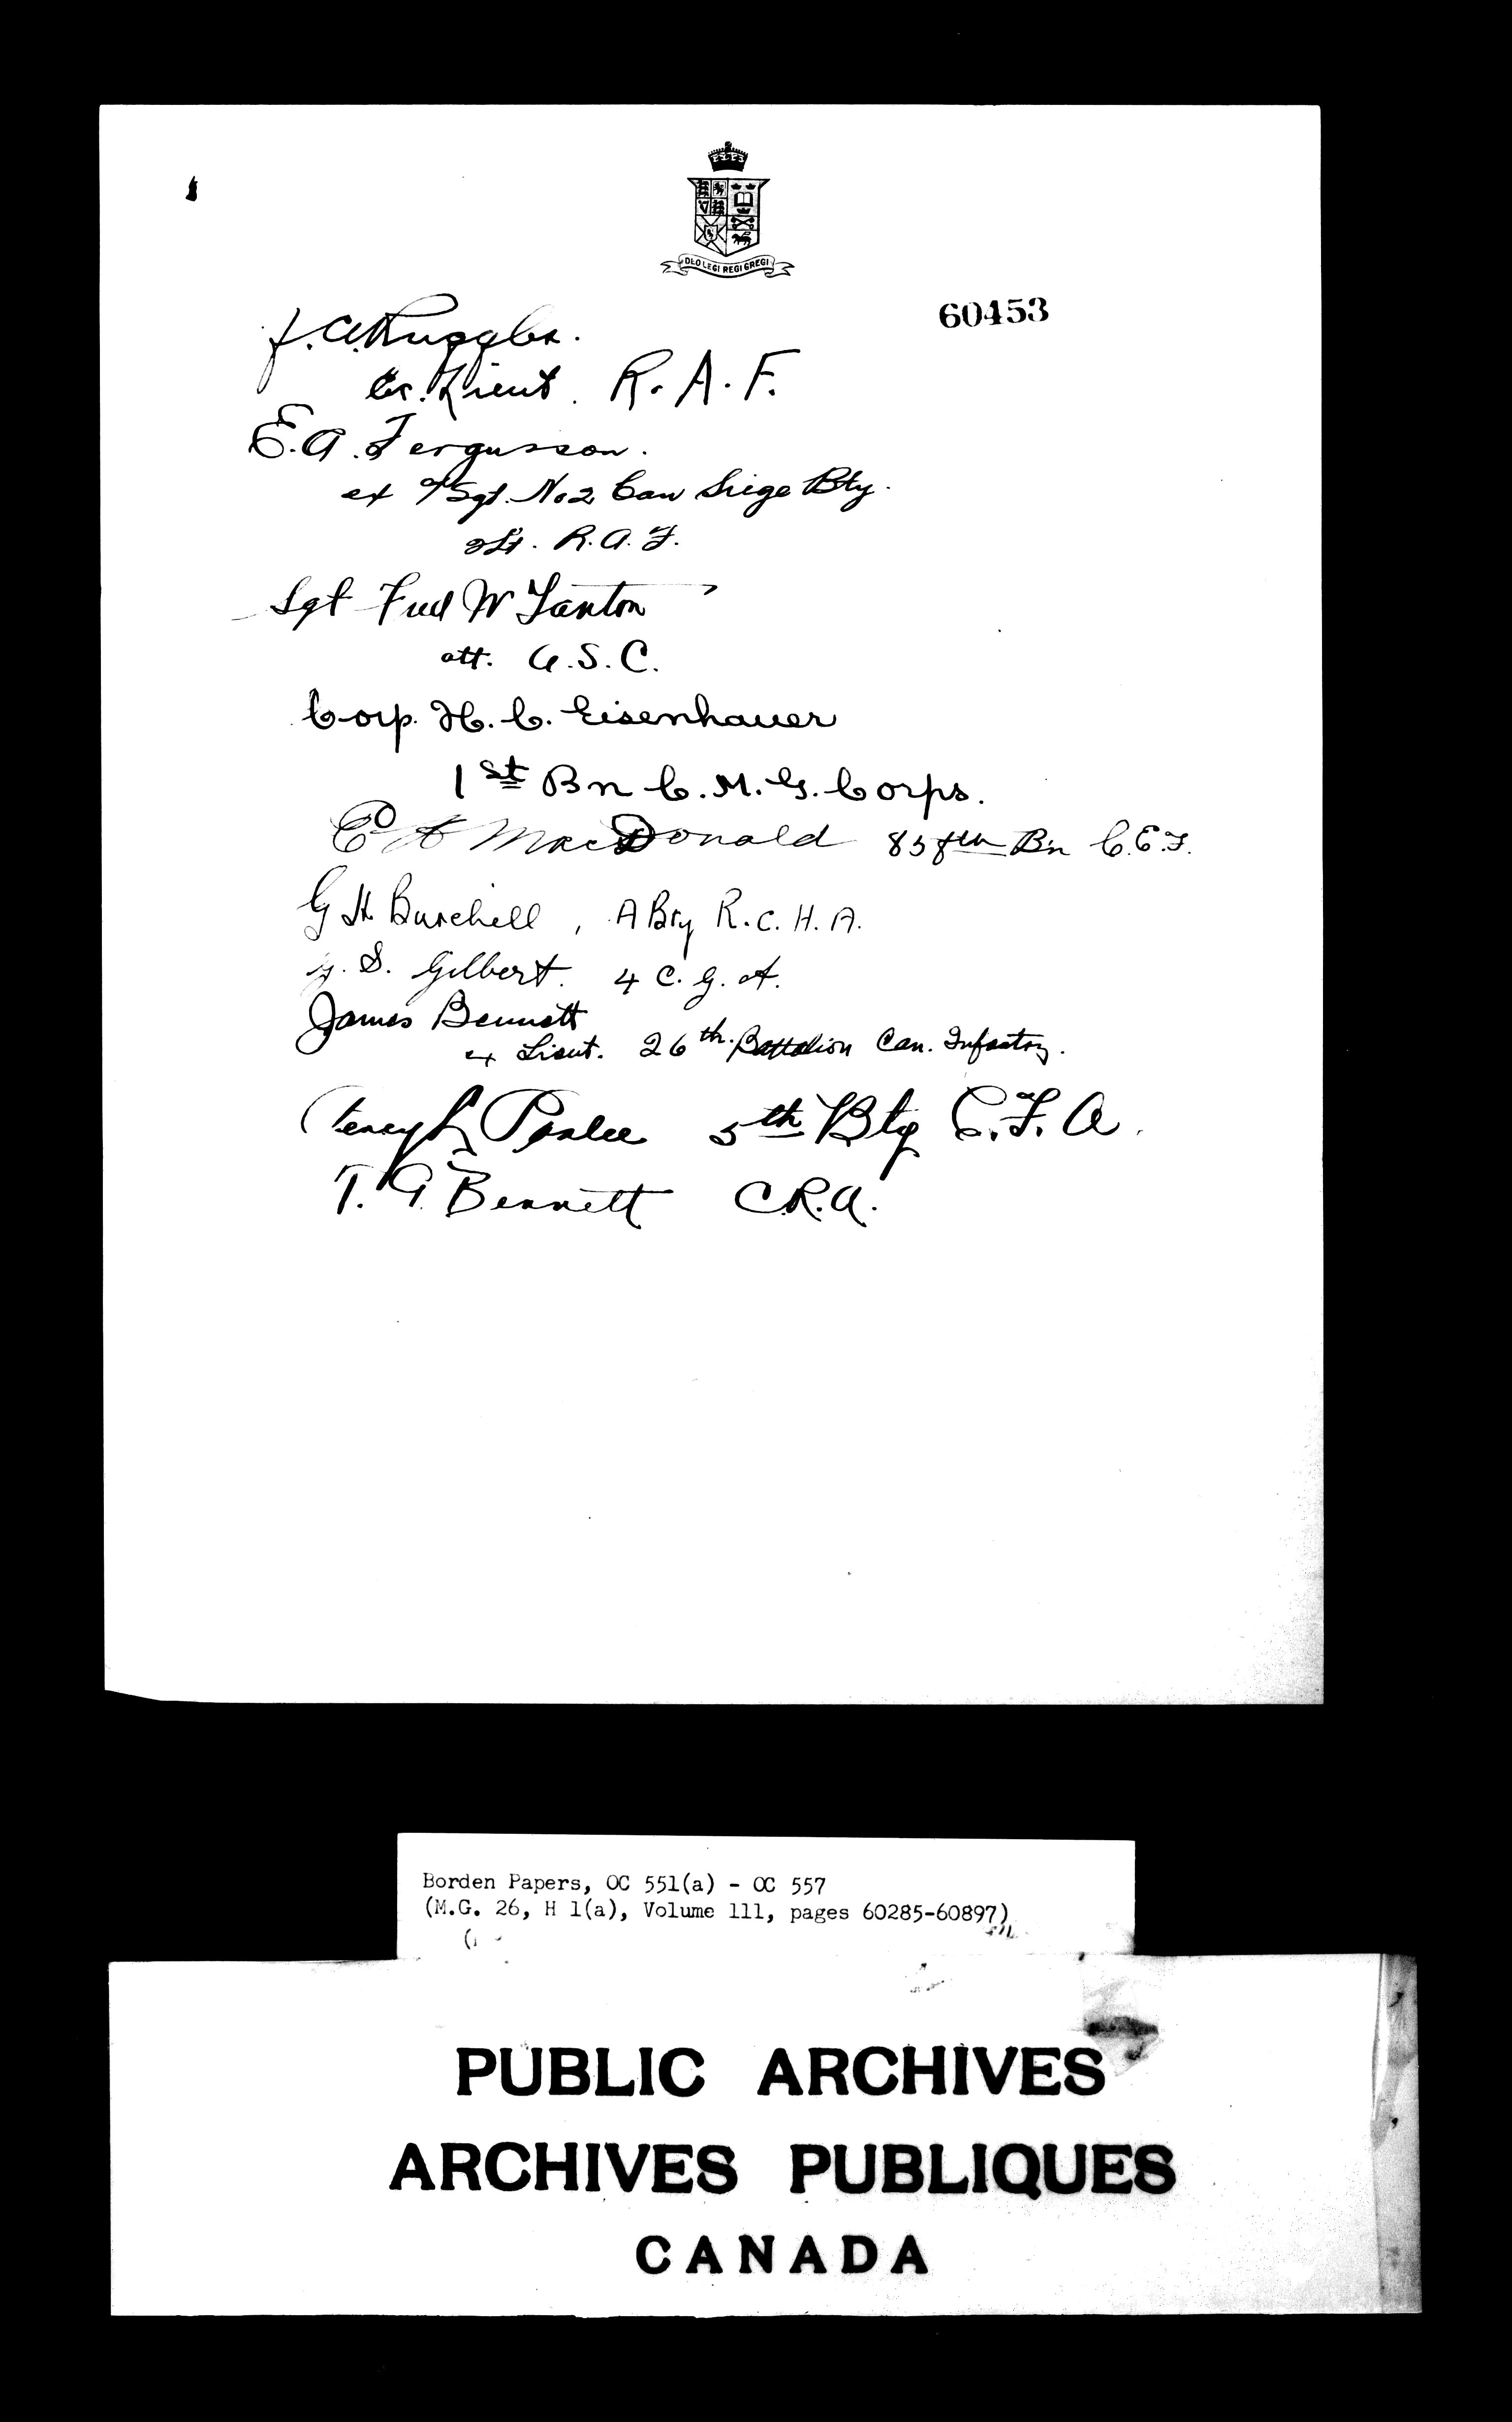 DEO LEGI REGI GREGI
60453
J. A. Ruggles.
Ex. Lieut. R. A. F.
E. A. Fergusson.
ex Sgt. No 2 Can Siege Bty.
Lt. R. A. F.
Sgt Fred W Tanton
att. A. S. C.
Corp. H. C. Eisenhauer
1st Bn C. M. G. Corps.
MacDonald 85th Bn C. E. F.
G H Burchell, A Bty R. C. H. A.
S. Gilbert. 4 C. G. A.
James Bennett
ex Lieut. 26th Battalion Can. Infantry.
Percy 5th Bty C. F. A.
T. G. Bennett C. R. A.
Borden Papers, OC 551(a) - OC 557
(M.G. 26, H 1(a), Volume 111, pages 60285-60897)
PUBLIC ARCHIVES
ARCHIVES PUBLIQUES
CANADA